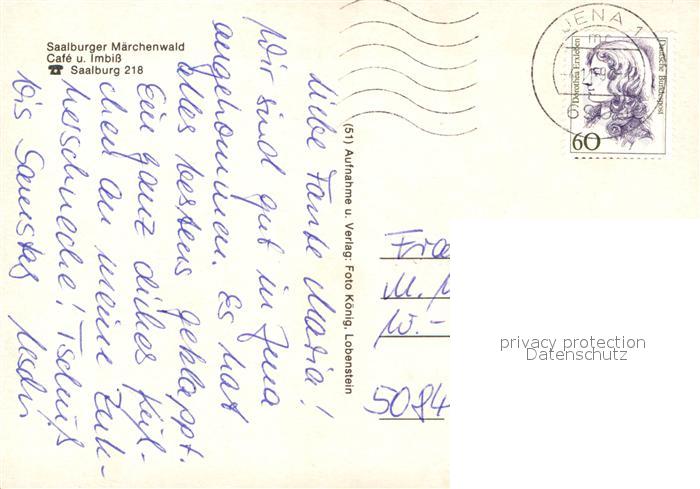 Saalburger Märchenwald
Café u. Imbiß
☎ Saalburg 218
Liebe Tante Maria!
Wir sind gut in Jena
angekommen. Es hat
alles bestens geklappt.
Ein ganz dickes Küß-
chen an meine Zuk-
Tschüß
bis Samstag
(51) Aufnahme u. Verlag: Foto König, Lobenstein
JENA 1
mc
Dorothea Erxleben
Deutsche Bundespost
60
Fra
M. M
W.-
5084
privacy protection
Datenschutz